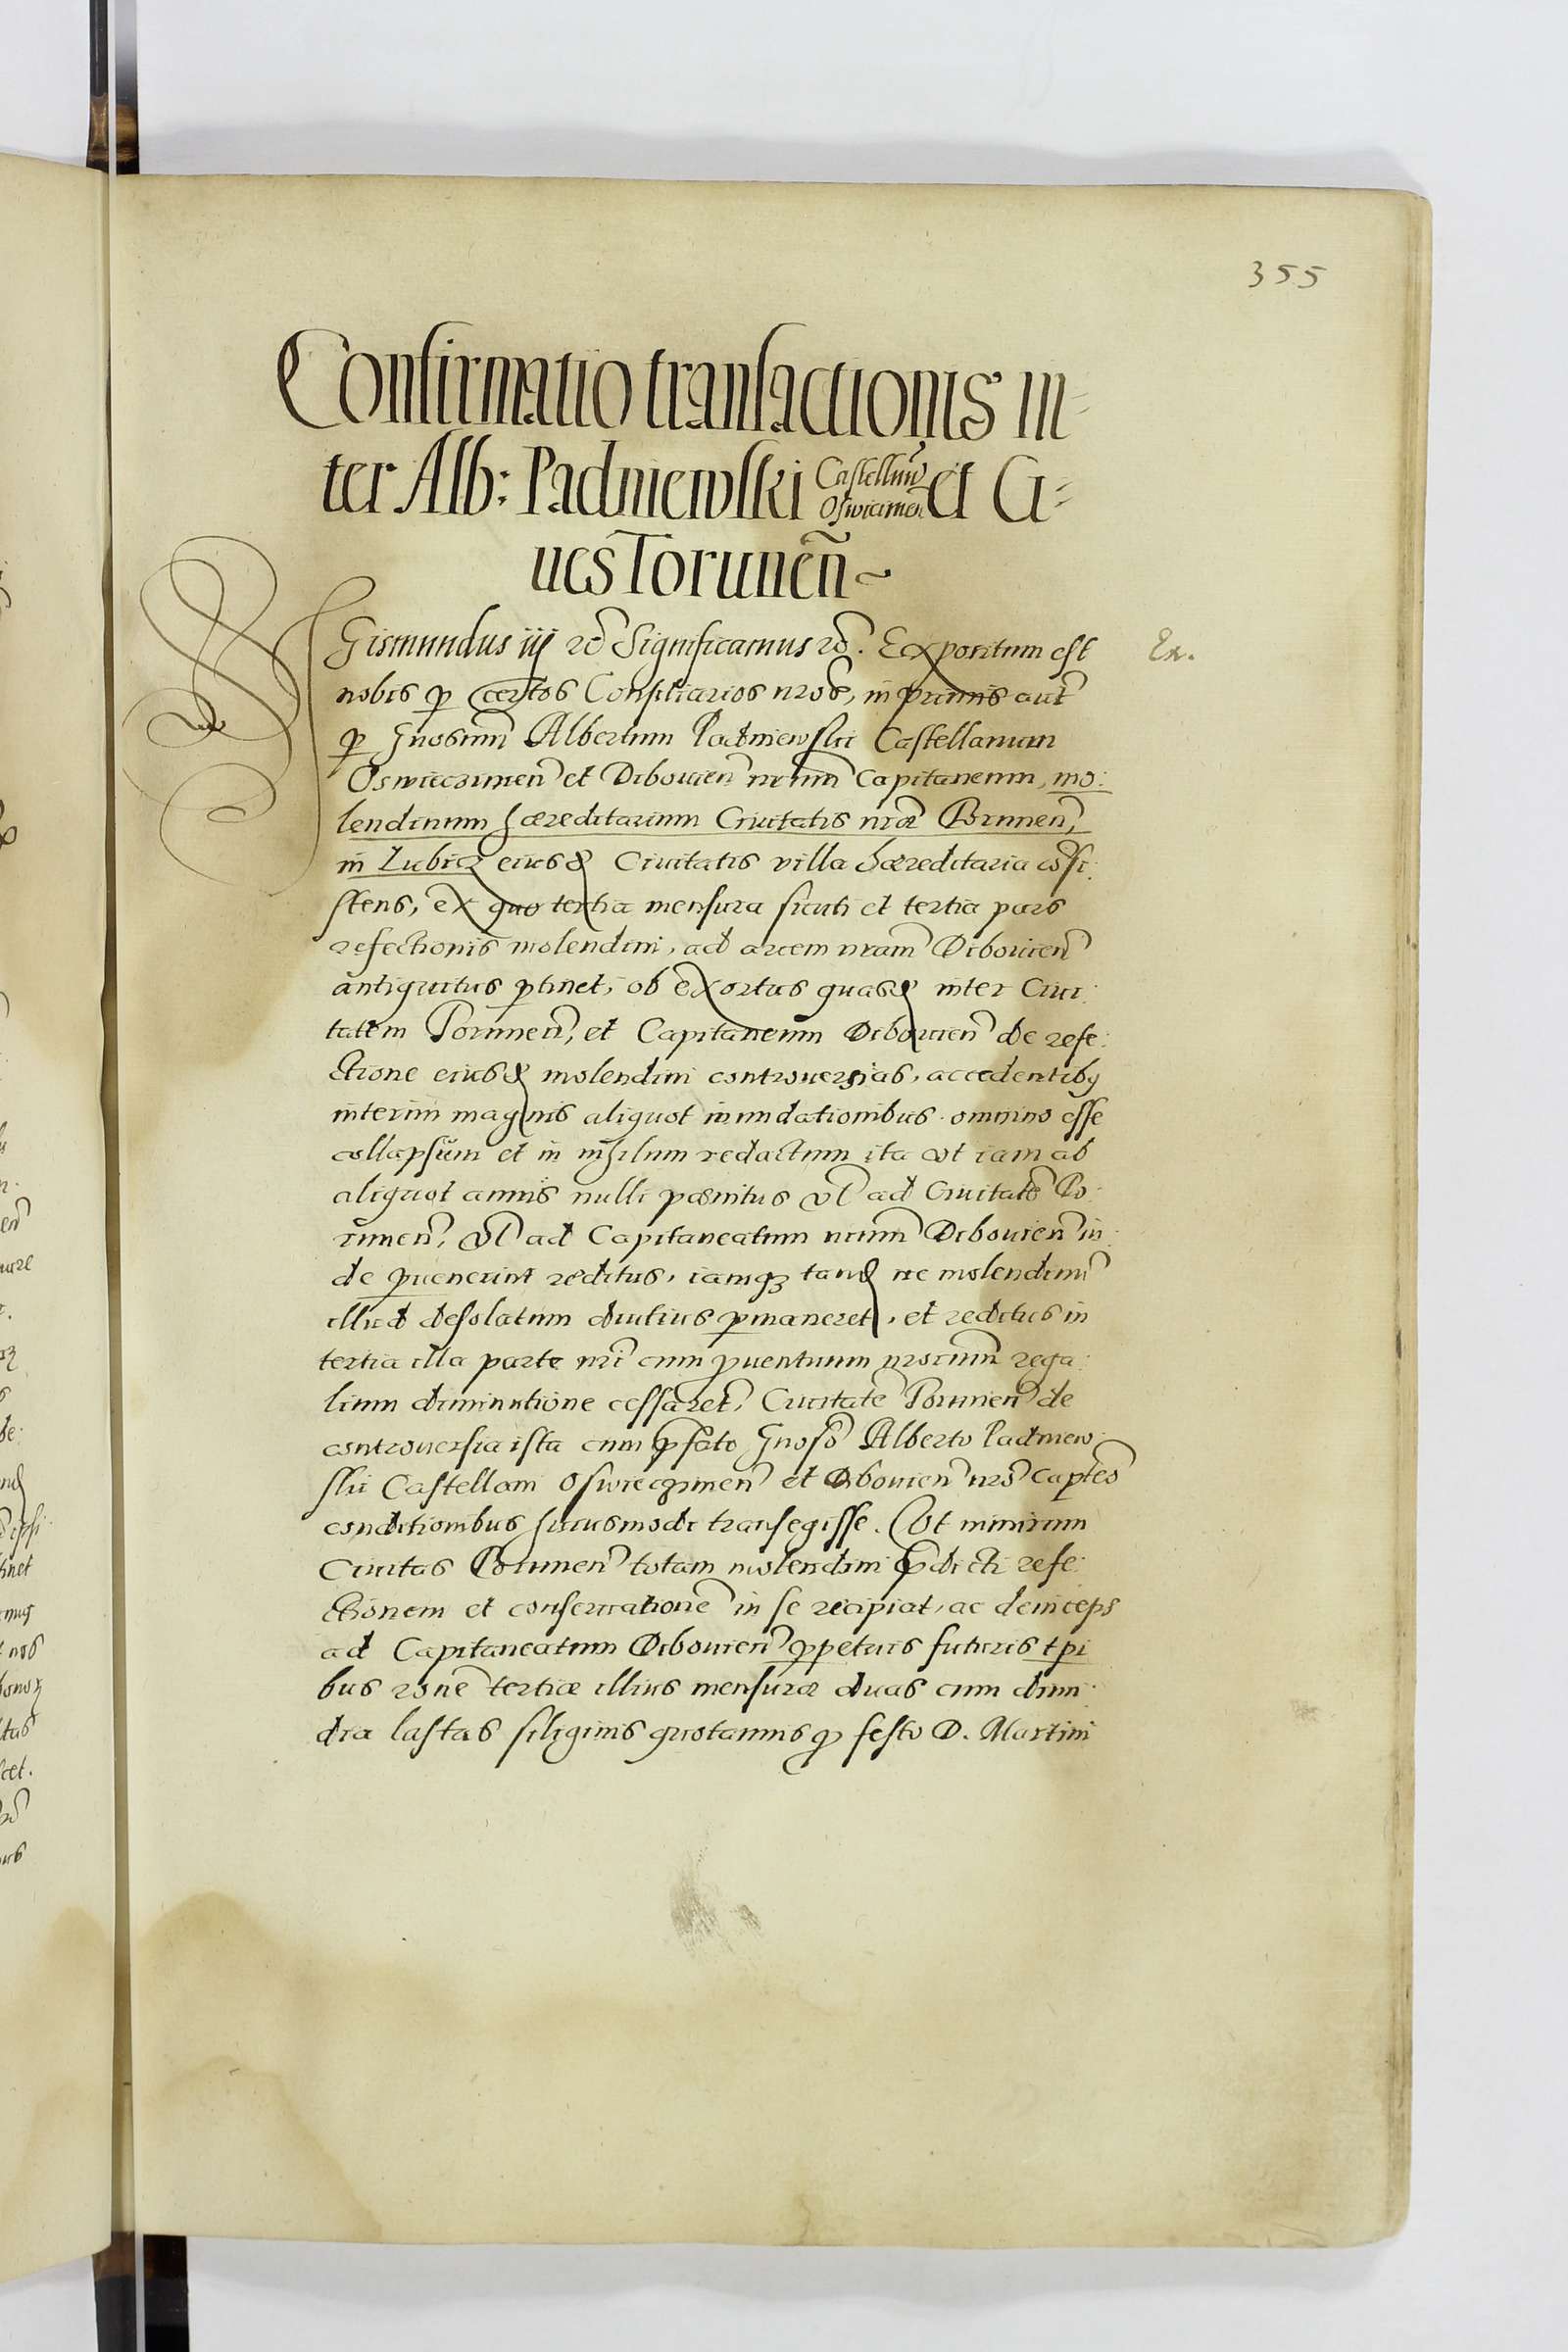 355
Confirmatio transactionis in-
ter Alb: Padniewski Castellanũ Oswiecimen̄ et Ci-
ues Torunen̄
Sigismundus iij etc̄ Significamus etc̄. Expositum est
Ex.
nobis p̱ certos Consiliarios nros, in primis aut̄
p̱ Gnosum̄ Albertum Padniewskii Castellanum
Oswieczimen̄ et Dibouien̄ nrum̄ Capitaneum, mo:
lendinum hæreditarium Ciuitatis nræ Torunen̄,
in Lubicz eiusḏ Ciuitatis villa hæreditaria cōsi:
stens, ex quo tertia mensura sicuti et tertia pars
refectionis molendini, ad arcem nram̄ Dibouien̄
antiquitus p̱tinet, ob exortas quasḏ inter Ciui:
tatem Torunen̄, et Capitaneum Dibouien̄ de refe:
ctione eiusḏ molendini controuersias, accedentibꝫ
interim magnis aliquot inundationibus omnino esse
collapsum et in nihilum redactum ita vt iam ab
aliquot annis nulli pœnitus vl̄ ad Ciuitatē To:
runen̄, vl̄ ad Capitaneatum nrum̄ Dibouien̄ in:
de ꝓuenerint reditus, iamqꝫ tanḏ ne molendinū
illud desolatum diutius p̱maneret, et reditus in
tertia illa parte nri cum ꝓuentuum nrorum̄ rega:
lium diminutione cessaret, Ciuitatē Torunen̄ de
controuersia ista cum p̄fato Gnoso Alberto Padniew:
skii Castellani Oswieczimen̄ et Dibouien̄ nro Capteo
conditionibus huiusmodi transegisse. Vt nimirum
Ciuitas Torunen̄ totam molendini p̄dicti refe:
ctionem et conseruationē in se recipiat, ac deinceps
ad Capitaneatum Dibouien̄ p̱petuis futuris tpi
bus rone tertiæ illius mensuræ duas cum dimi:
dia lastas siliginis quotannis ꝓ festo D. Martini